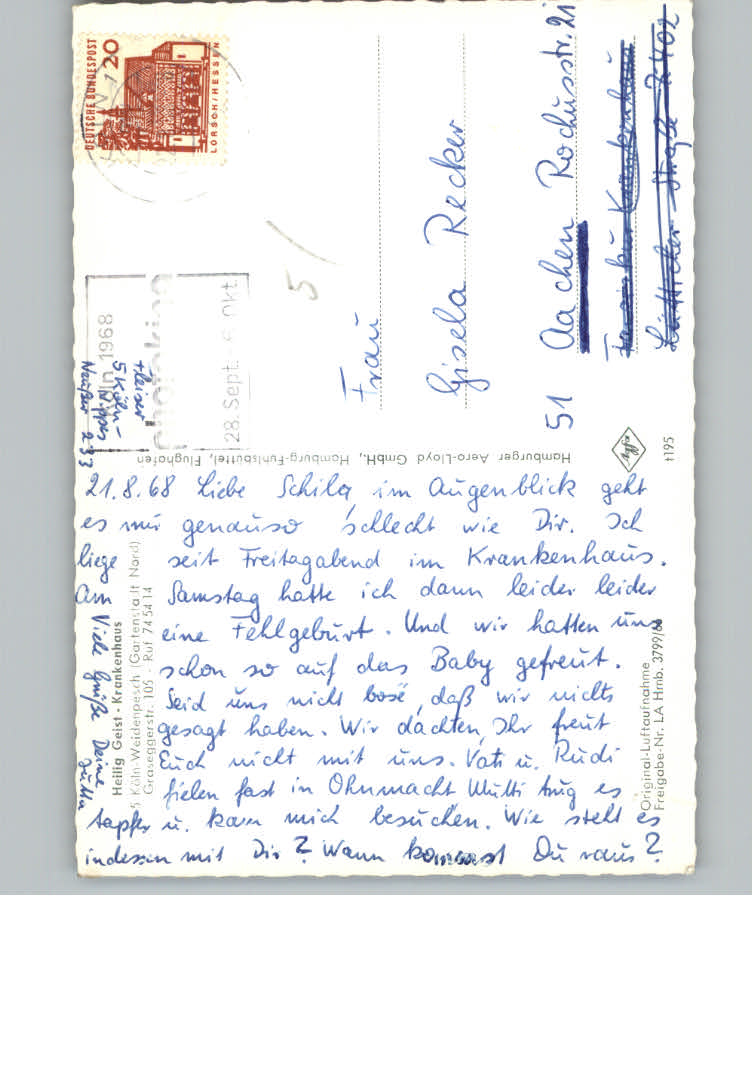 DEUTSCHE BUNDESPOST
20
LORSCH/HESSEN
Köln 1968
photokina
28. Sept. - 6. Okt.
5
Frau
Gisela Recker
51 Aachen Rochusstr. 21
Lütticher Straße
Heiser
5 Köln-
Nippes
Neußer 233
Hamburger Aero-Lloyd GmbH., Hamburg-Fuhlsbüttel, Flughafen
t195
21.8.68 Liebe Schila, im Augenblick geht
es mir genauso schlecht wie Dir. Ich
liege seit Freitagabend im Krankenhaus.
Am Samstag hatte ich dann leider leider
eine Fehlgeburt. Und wir hatten uns
schon so auf das Baby gefreut.
Seid uns nicht böse, daß wir nichts
gesagt haben. Wir dachten, Ihr freut
Euch nicht mit uns. Vati u. Rudi
fielen fast in Ohnmacht Mutti trug es
tapfer u. kam mich besuchen. Wie steht es
indessen mit Dir? Wann kommst Du raus?
Viele Grüße Deine
Jutta
Heilig Geist - Krankenhaus
5 Köln-Weidenpesch (Gartenstadt Nord)
Graseggerstr. 105 - Ruf 74 54 14
Original-Luftaufnahme
Freigabe-Nr. LA Hmb. 3799/66